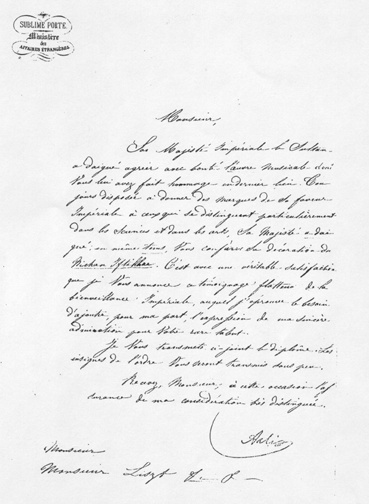 SUBLIME PORTE.
Ministère
des
AFFAIRES ÉTRANGÈRES.
Monsieur,
Sa Majesté Impériale le Sultan
a daigné agréer avec bonté l'œuvre musicale dont
Vous lui avez fait hommage en dernier lieu. Tou-
jours disposée à donner des marques de sa faveur
Impériale à ceux qui se distinguent particulièrement
dans les Sciences et dans les arts, Sa Majesté a dai-
gné, en même tems, Vous conférer la décoration du
Nichan Iftihar. C'est avec une véritable satisfaction
que je Vous annonce ce témoignage flatteur de la
bienveillance Impériale, auquel j'éprouve le besoin
d'ajouter, pour ma part, l'expression de ma sincère
admiration pour Votre rare talent.
Je Vous transmets ci-joint le diplôme. Les
insignes de l'ordre Vous seront transmis sous peu.
Recevez, Monsieur, à cette occasion l'as-
surance de ma considération très distinguée.
Monsieur
Monsieur Liszt